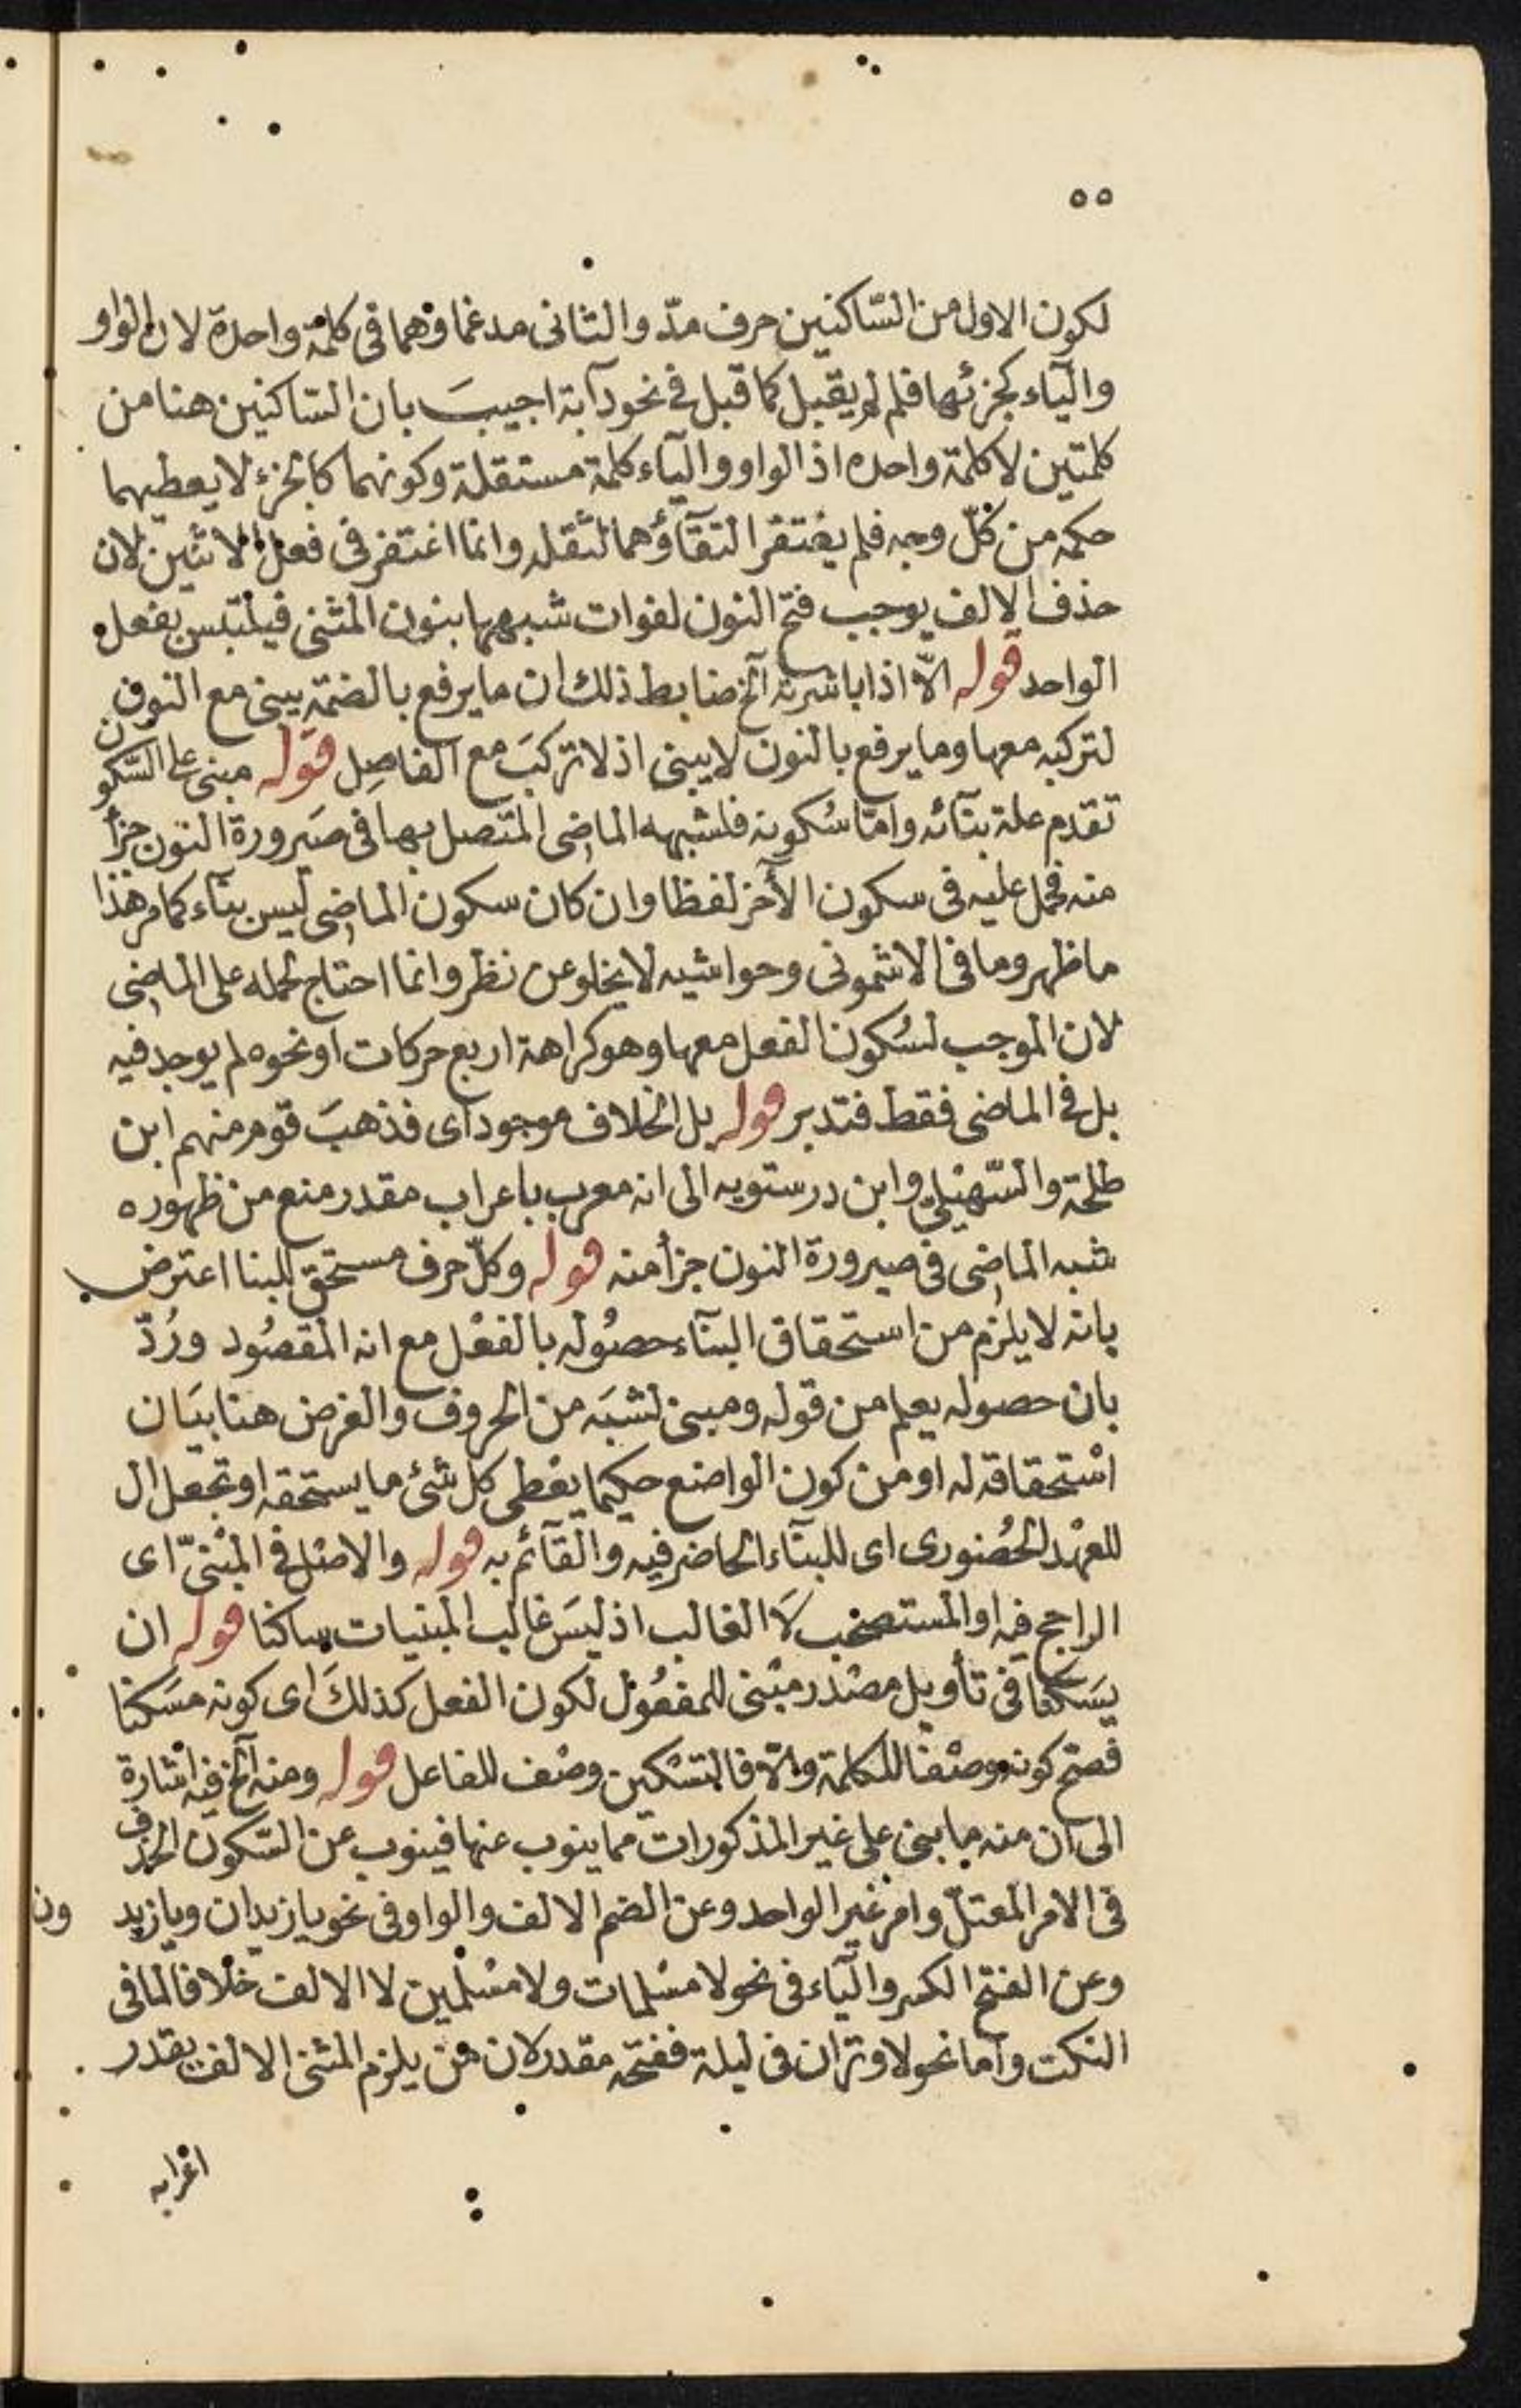 ٥٥
لكون الاول من السّاكنين حرف مدّ والثانى مدغما وهما فى كلمة واحدة لان الواو
والياء كجزئها فلم لم يقبل كما قبل فى نحو دآبة اجيبَ بان السّاكنين هنا من
كلمتين لا كلمة واحده اذ الواو والياء كلمة مستقلة وكونهما كالجزء لا يعطيهما
حكمه من كلّ وجه فلم يغتقر التقآؤهما لثقله وانما اغتفر فى فعل الاثنين لان
حذف الالف يوجب فتح النون لفوات شبهها بنون المثنى فيلتبس بفعل
الواحد قوله الاّ اذا باشرته الخ ضابط ذلك ان ما يرفع بالضمة يبنى مع النون
لتركبه معها وما يرفع بالنون لا يبنى اذ لا تركبَ مع الفاصِل قوله مبنى على السّكون
تقدم علة بنآئه وامّا سُكونه فلشبهه الماضى المتصل بها فى صَيرورة النون جزأ
منه فحمل عليه فى سكون الأخر لفظا وان كان سكون الماضى ليس بنآء كما مر هذا
ما ظهر وما فى الاشمونى وحواشيه لا يخلو عن نظر وانما احتاج لحمله على الماضى
لان الموجب لسُكون الفعل معها وهو كراهة اربع حركات او نحوه لم يوجد فيه
بل فى الماضى فقط فتدبر قوله بل الخلاف موجود اى فذهبَ قوم منهم ابن
طلحة والسّهيْلىّ وابن درستويه الى انه معرب باعراب مقدر منع من ظهوره
شبه الماضى فى صيرورة النون جزأ منه قوله وكلّ حرف مستحق للبنا اعترض
بانه لا يلزم من استحقاق البنآء حصُوله بالفعْل مع انه المقصُود ورُدّ
بان حصوله يعلم من قوله ومبنى لشبَه من الحروف والغرض هنا بيَان
اسْتحقاقه له او من كون الواضع حكيما يعْطى كل شئ ما يستحقه او تجعل ال
للعهْد الحُضورى اى للبنآء الحاضر فيه والقآئم به قوله والاصْل فى المبْنىّ اى
الراجح فيه او المستصحَب لاَ الغالب اذ ليسَ غالب المبنيات ساكنا قوله ان
يسَكّنا فى تأويل مصْدر مبْنى للمفعُول لكون الفعل كذلكَ اى كونه مسَكنا
فصحّ كونه وصْفا للكلمة والاّ فالتسْكين وصْف للفاعل قوله ومنه الخ فيه اشارة
الى ان منه ما بنى على غير المذكورات مما ينوب عنها فينوب عن السّكون الحذف
فى الامر المعتلّ وامر غير الواحد وعن الضم الالف والواو فى نحو يا زيدان ويا زيدون
وعن الفتح الكسر والياء فى نحو لا مسْلمات ولا مسْلمين لا الالف خلافا لما فى
النكت واما نحو لا وتران فى ليلة ففتحه مقدر لان من يلزم المثنى الالف يقدر
اعرابه